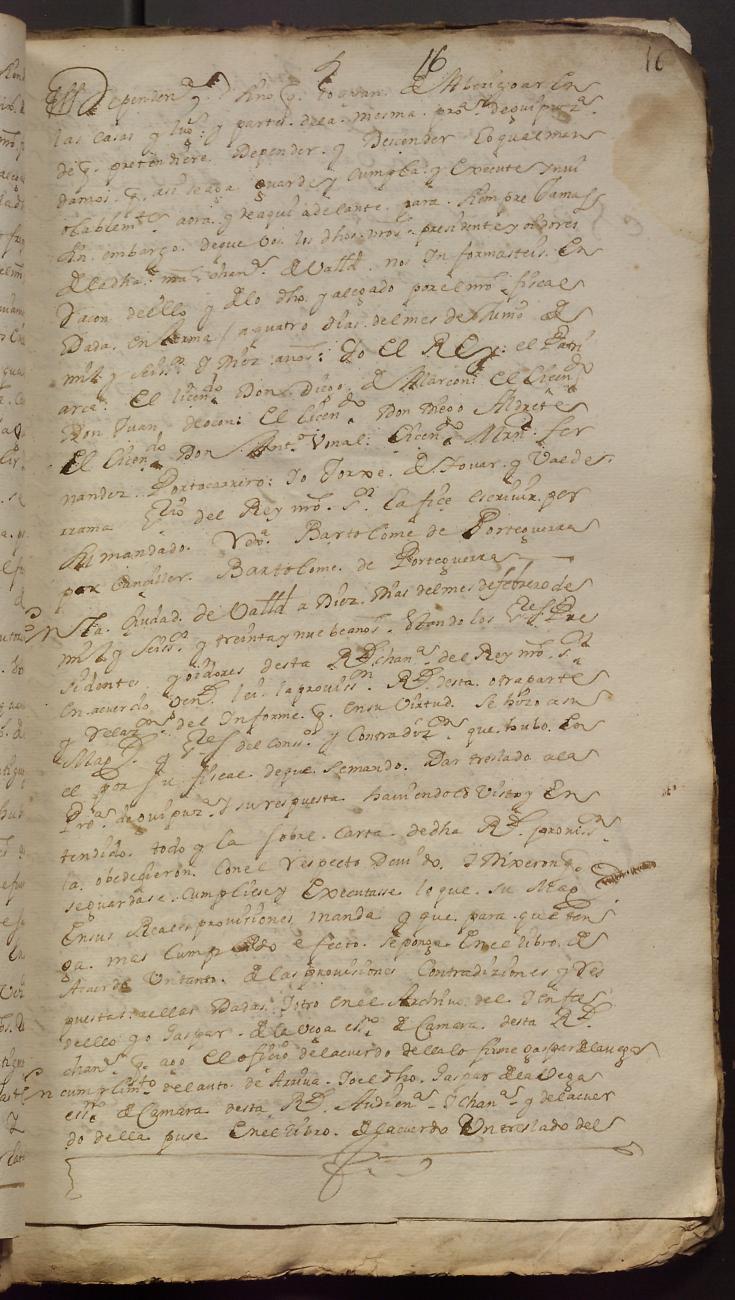 4 16 16
Depender y. sino q. lo ayan. de Aberiguar En
las casas y lug. y partes. dela. mesma. pro.ª de guipuz.ª
de q. pretendiere. Depender. y Decender Lo qual man
damos. q. asi se aga guarde y cumpla. y Execute ynui
olablem.te aora. y de aqui adelante. para. siempre Jamas
sin. embargo. de que Vos los dhos. nros. presidente y oidores
de la dha. nra. chan.ª de Valld. nos Ynformasteis. En
Raçon dello y de lo dho. y alegado por el nro. fiscal
Dada. En Lerma / a quatro dias. del mes de Junio de
mill y seiss.os y Diez años: Yo El Rey: el Patri
arca: El licen.do Don. Diego. de Alarcon: El Licen.do
Don Juan. de ocon: El Licen.do Don Diego Aldrete
El Licen.do Don. Ant.º Vonal: Licen.do Man.l fer
nandez. Portocarrero: Yo Jorxe. de Tovar. y Valde
rrama s.rio del Rey nro. s.r La fice escrivir. por
su mandado. Rda. Bartolome de Porteguera
por Canciller. Bartolome. de Porteguera
En la Ciudad. de Valld a Diez. dias del mes de febrero de
mill y seiss.os y treinta y nuebe años. Estando los s.res Pre
sidente. y oidores desta Rl. chan.ª del Rey nro. s.r
En acuerdo. Vien. lei. la proviss.n Rl. desta. otra parte
y Relaz.on del Ynforme. q. en su Virtud. se hizo a su
Mag.d y s.res del cons.º y Contradiz.on que. hubo. Por
el por su fiscal de que. se mando. Dar treslado a la
Pro.ª de guipuz.ª Y su respuesta haviendolo Visto y En
tendido. todo y la sobre. carta. de dha Rl. proviss.n
la. obedecieron. Con el Respecto Devido. Y Dixeron q.
se guardase. Cumpliese y Executasse lo que. su Mag.d
En sus Reales provisiones manda y que. para. que ten
ga. mas Cumplido efecto. se ponga En el libro. de
Acuerdo Un tanto. de las provisiones Contradiziones y Res
puestas. a ellas Dadas. Y otro en el Archivo del Y en fee
dello yo Gaspar. de la Vega es.no de Camara. desta Rl.
chan.ª q. ago El ofizio del acuerdo della lo firme gaspar de la vega
En cumplim.to del auto. de Arriva. Yo el dho. Gaspar de la Vega
es.no de Camara desta Rl. Audien.ª Y Chan.ª y del acuer
do della puse En el libro. del acuerdo Un treslado del